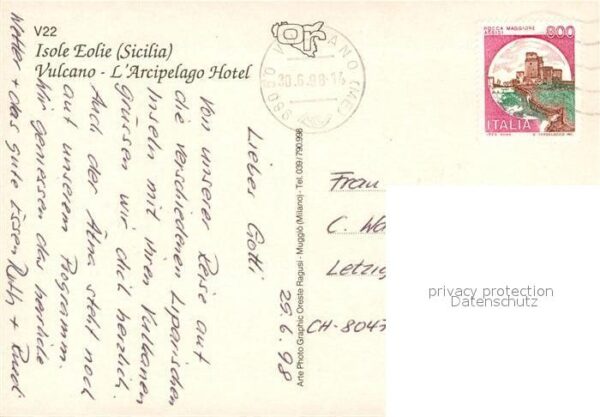 V22
Isole Eolie (Sicilia)
Vulcano - L'Arcipelago Hotel
98050 VULCANO (ME)
30.6.98-14
ROCCA MAGGIORE
ASSISI
800
ITALIA
29.6.98
Liebes Gotti
Von unserer Reise auf
die verschiedenen Liparischen
Inseln mit ihren Vulkanen
grüssen wir dich herzlich.
Auch der Ätna steht noch
auf unserem Programm.
Wir geniessen das herrliche
Wetter + das gute Essen Ruth + Ruedi
Arte Photo Graphic Oreste Ragusi - Muggiò (Milano) - Tel. 039/790.998
Frau
C. Wa
Letzig
CH-8047
privacy protection
Datenschutz